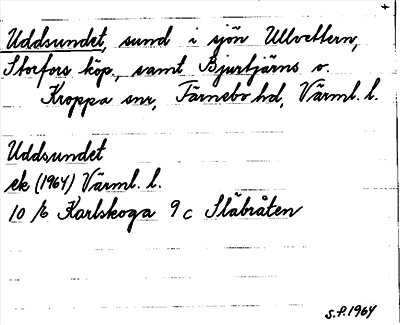 Uddsundet, sund i sjön Ullvettern,
Storfors köp., samt Bjurtjärns o.
Kroppa snr, Färnebo hd, Värml. l.
Uddsundet
ek (1964) Värml. l.
10 /6 Karlskoga 9 c Släbråten
S.P. 1964